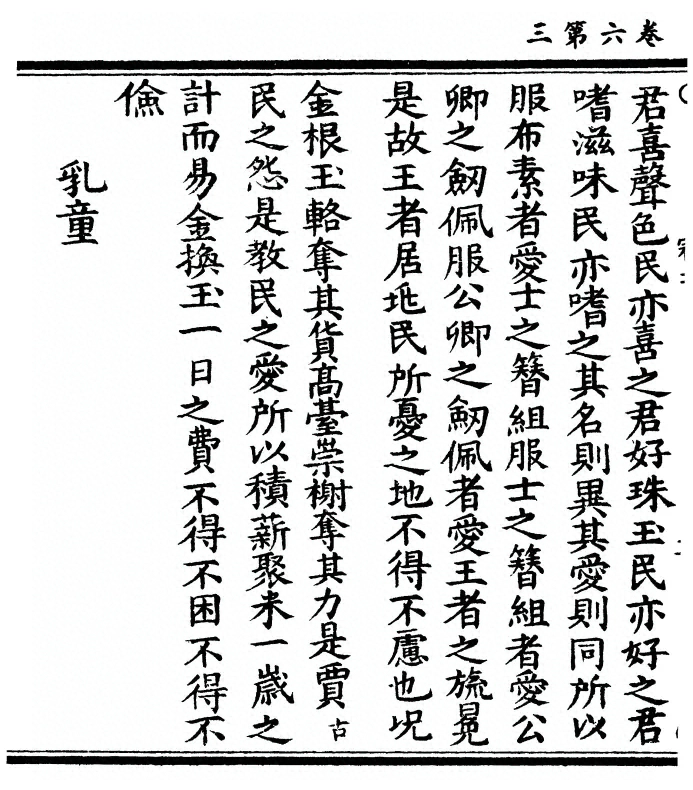 卷六第三
君喜聲色民亦喜之君好珠玉民亦好之君
嗜滋味民亦嗜之其名則異其愛則同所以
服布素者愛士之簪組服士之簪組者愛公
卿之劒佩服公卿之劒佩者愛王者之旒冕
是故王者居兆民所憂之地不得不慮也況
金根玉輅奪其貨高臺崇榭奪其力是賈古
民之怨是教民之愛所以積薪聚米一歲之
計而易金換玉一日之費不得不困不得不
儉
乳童